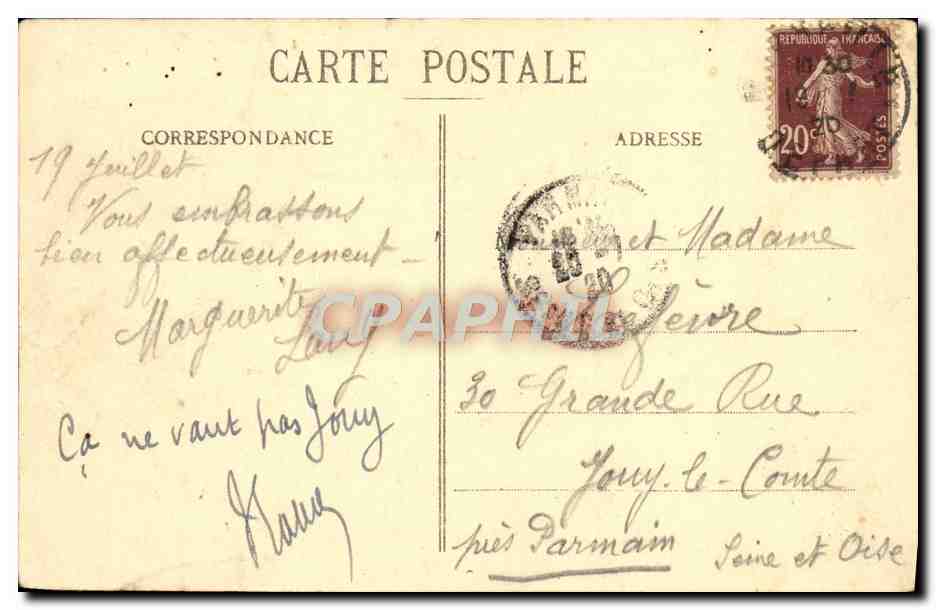 CARTE POSTALE
CORRESPONDANCE
19 Juillet
Vous embrassons
bien affectueusement —
Marguerite
Ça ne vaut pas Jouy
ADRESSE
RÉPUBLIQUE FRANÇAISE
10 30
20
20c
POSTES
et Madame
Lefèvre
30 Grande Rue
Jouy-le-Comte
près Parmain
Seine et Oise
CPAPHIL